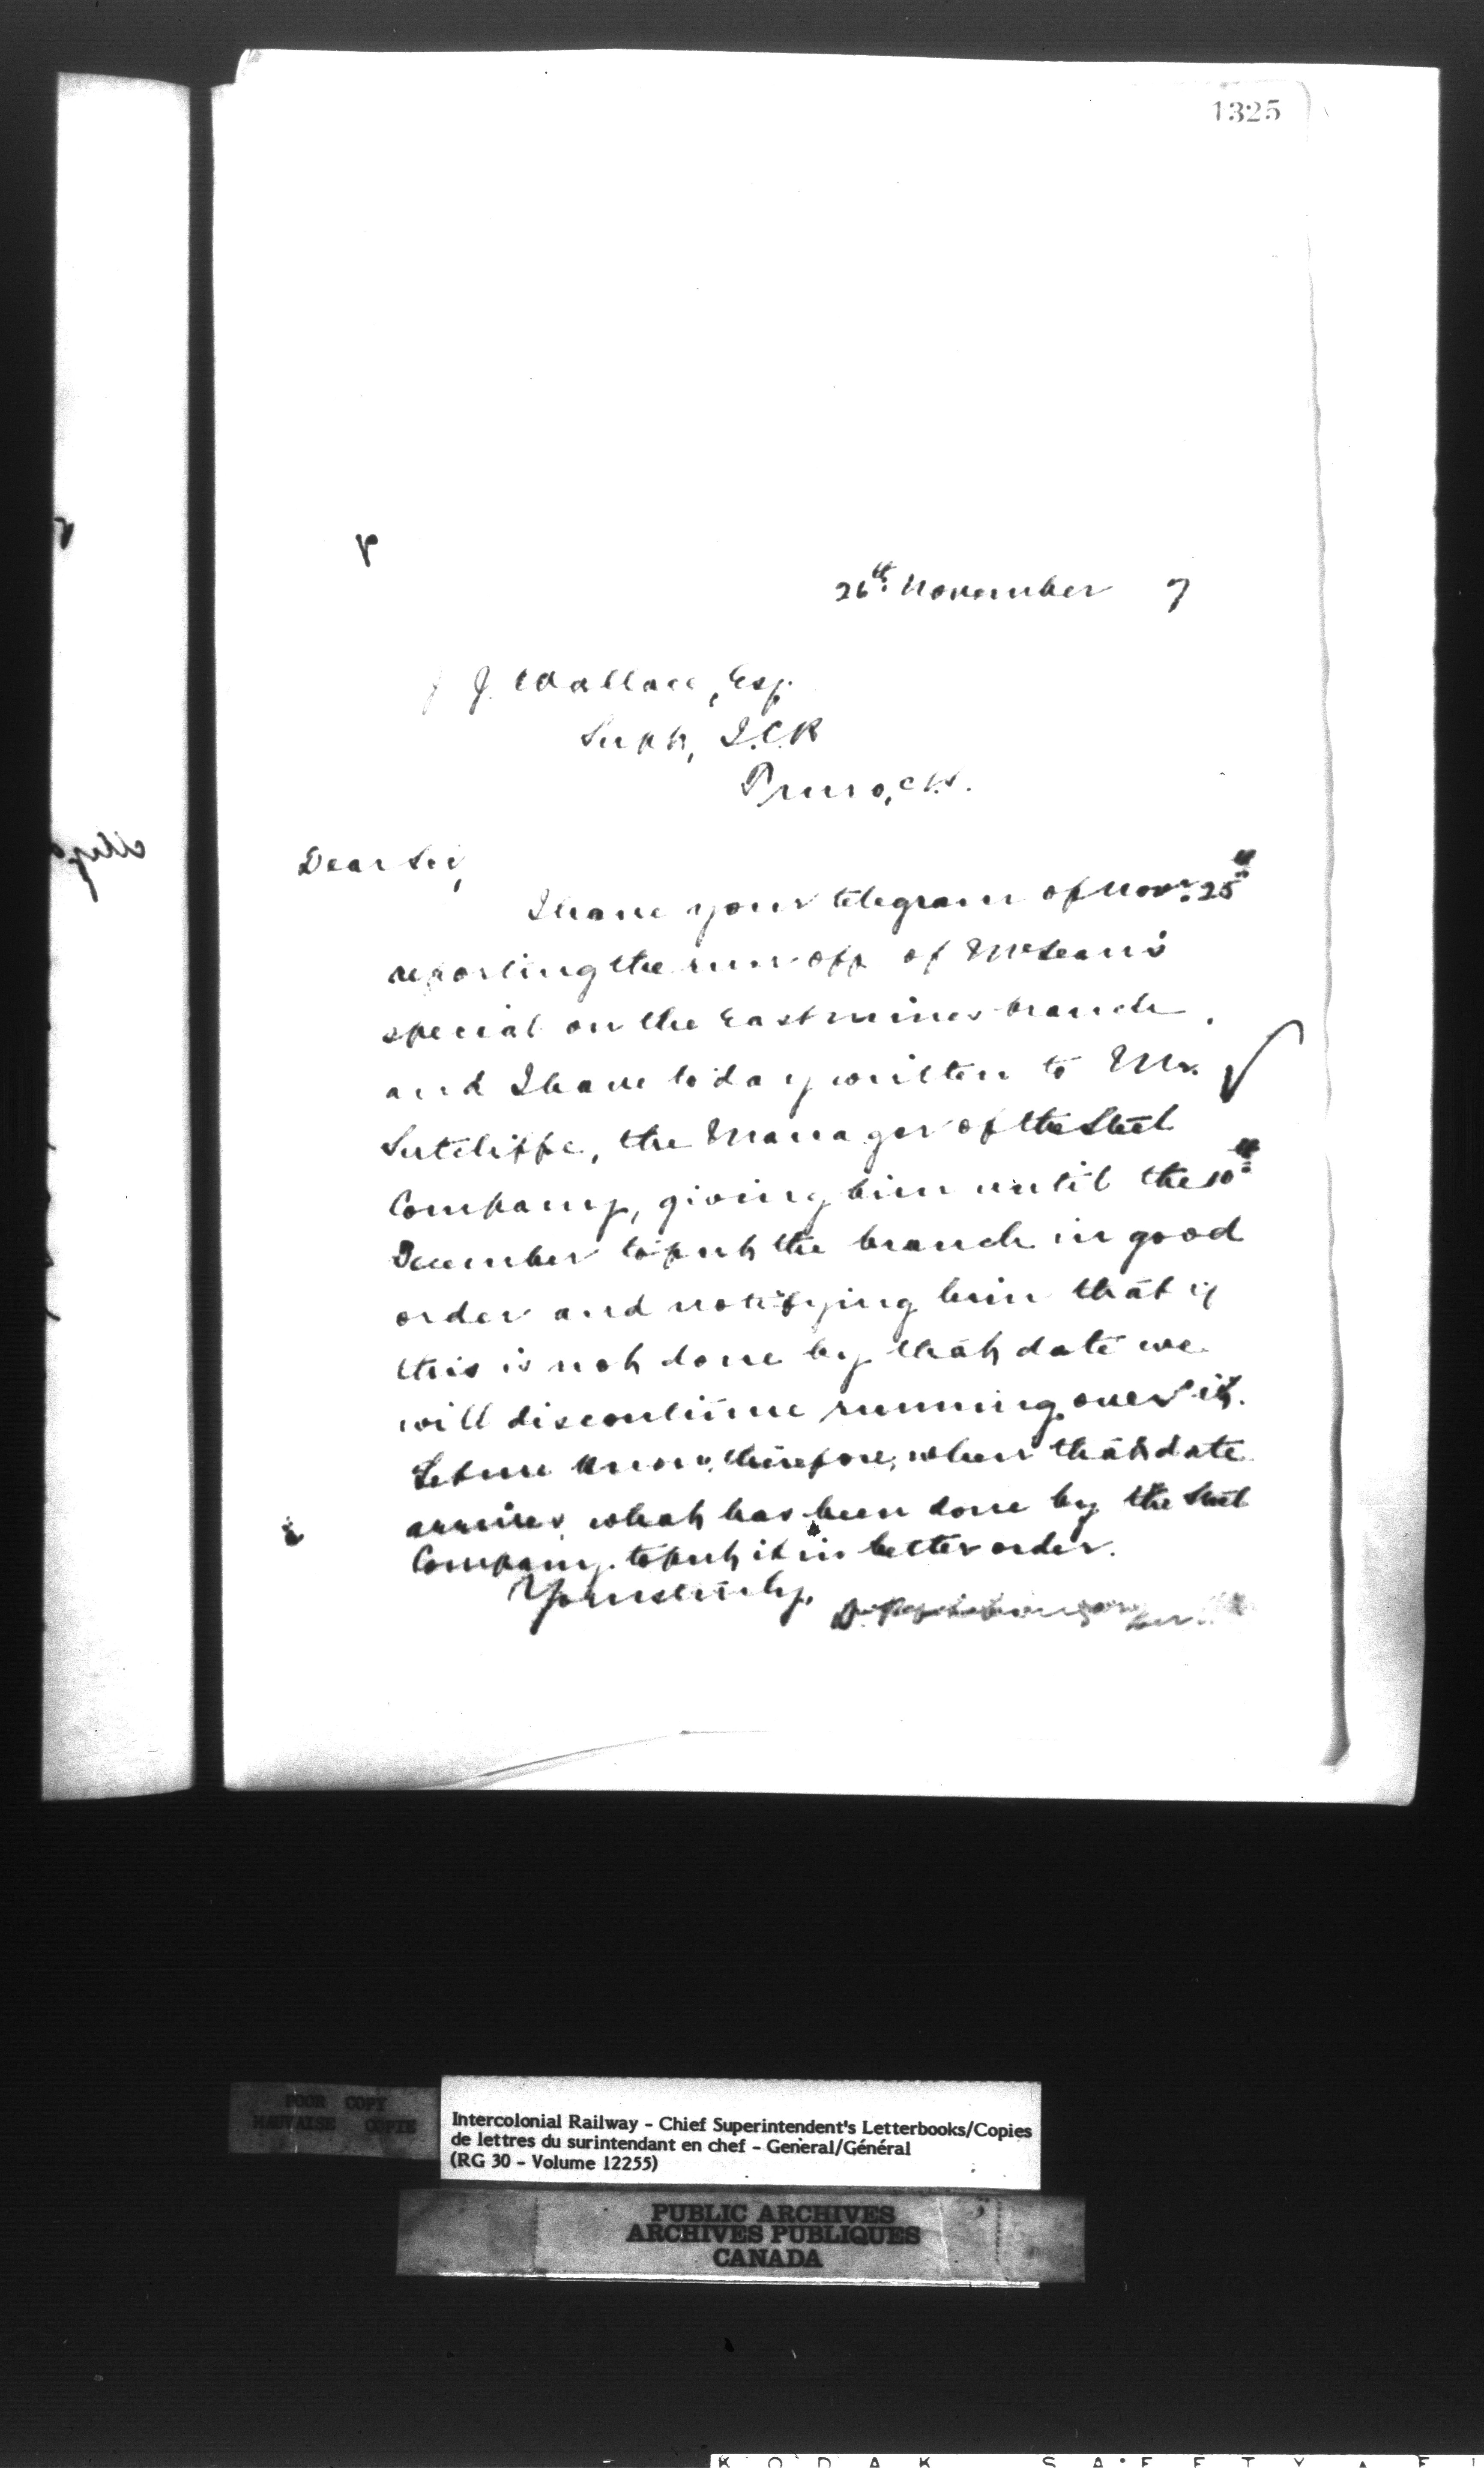 1325
26th November 7
J. Wallace, Esq.
Supt, I.C.R
Truro, N.S.
Dear Sir,
I have your telegram of Novr. 25th
reporting the run off of McLean's
special on the East mines branch,
and I have today written to Mr.
Sutcliffe, the Manager of the Steel
Company, giving him until the 10th
December to put the branch in good
order and notifying him that if
this is not done by that date we
will discontinue running over it.
Let me know, therefore, when that date
arrives, what has been done by the Steel
Company to put it in better order.
Yours truly,
POOR COPY
MAUVAISE COPIE
Intercolonial Railway - Chief Superintendent's Letterbooks/Copies
de lettres du surintendant en chef - General/Général
(RG 30 - Volume 12255)
PUBLIC ARCHIVES
ARCHIVES PUBLIQUES
CANADA
KODAK SAFETY